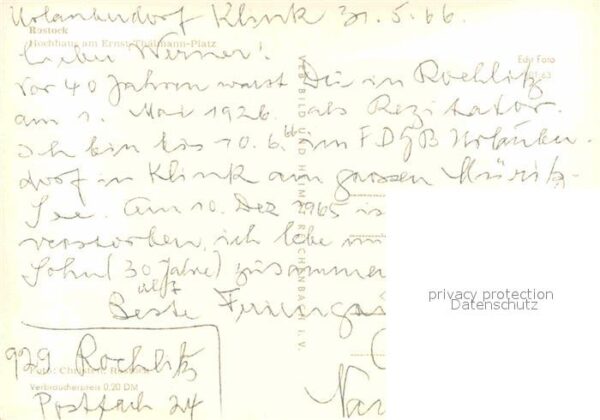 Urlauberdorf Klink 31.5.66.
Rostock
Hochhaus am Ernst-Thälmann-Platz
Lieber Werner!
Echt Foto
vor 40 Jahren warst Du in Rochlitz
am 1. Mai 1926 als Rezitator.
Ich bin bis 10.6. im FDGB Urlauber-
dorf in Klink am grossen Müritz-
See. Am 10. Dez 1965 is
verstorben, ich lebe mi
Sohn (30 Jahre) zusamme
Beste
VEB BILD UND HEIMAT REICHENBACH I. V.
privacy protection
Datenschutz
929 Rochlitz
Foto: Christen, Rostock
Verbraucherpreis 0,20 DM
Postfach 24